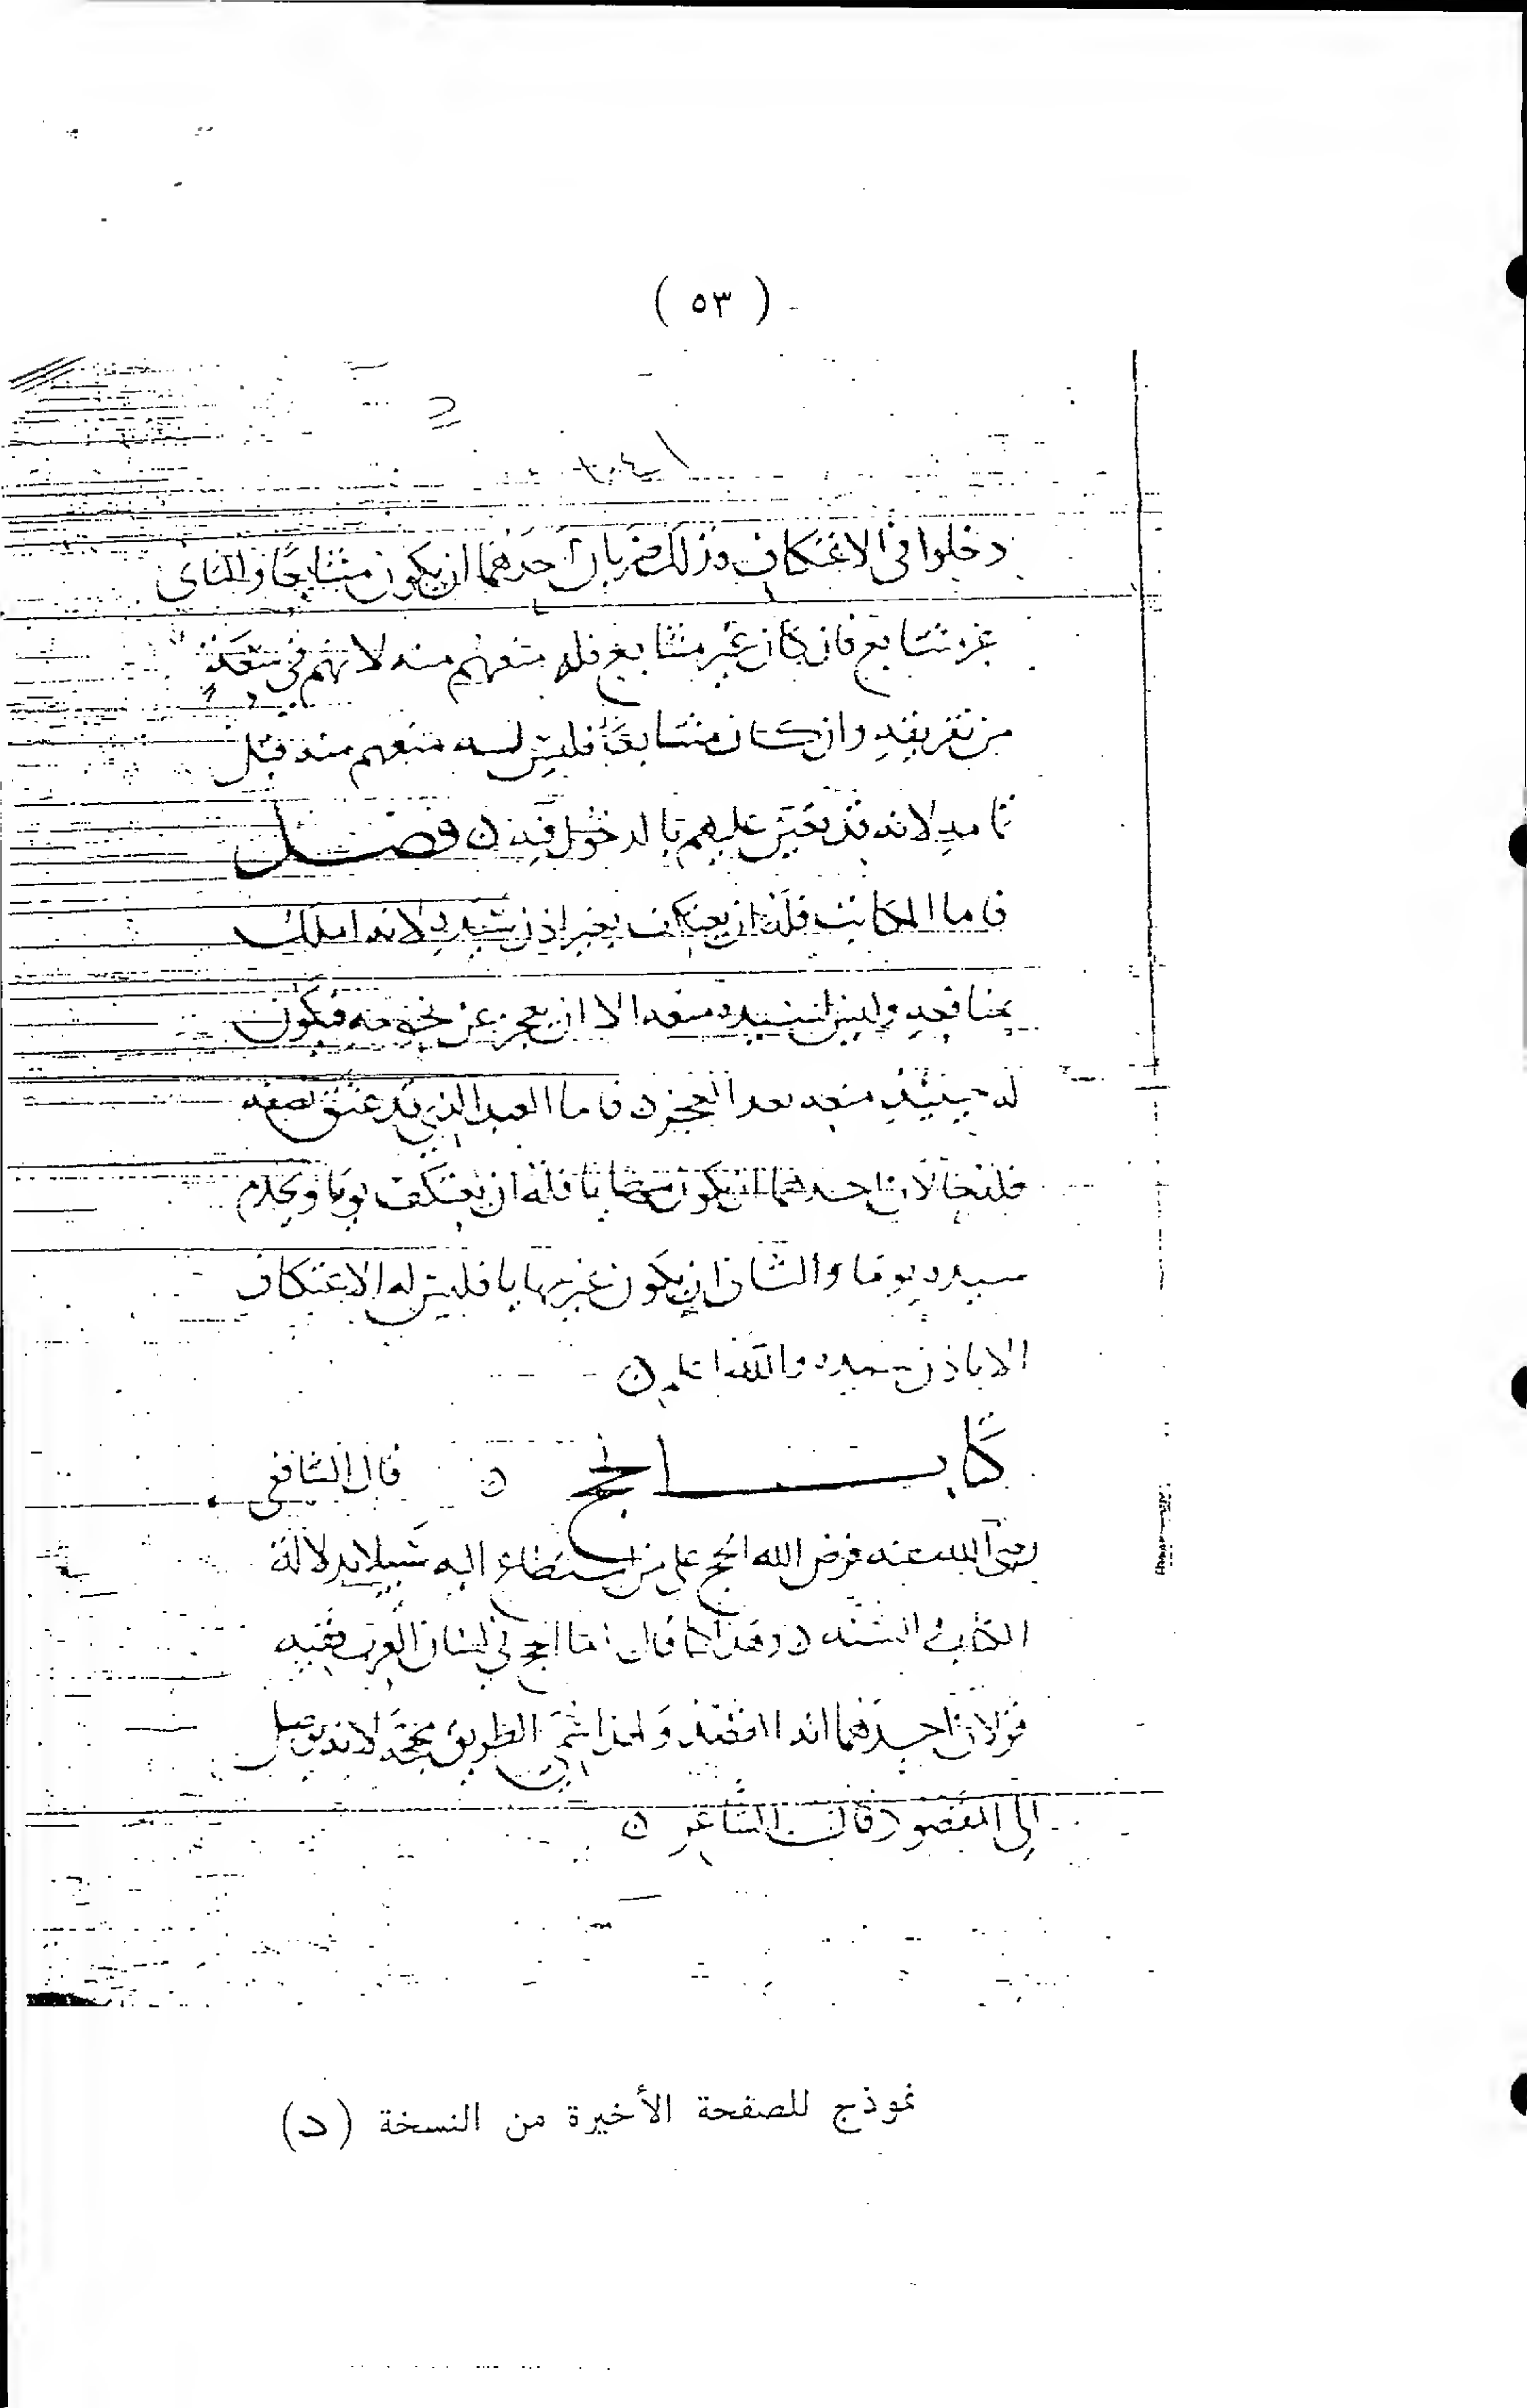 ( ٥٣ )
دخلوا في الاعتكاف وذلك ضربان احدهما ان يكون متتابعًا والثاني
غير متتابع فان كان غير متتابع فله منعهم منه لانهم في سعة
من تفريقه وان كان متتابعًا فليس له منعهم منه قبل
تمامه لانه قد تعين عليهم بالدخول فيه ن فصل
فاما المكاتب فله ان يعتكف بغير اذن سيده لانه املك
بمنافعه وليس لسيده منعه الا ان يعجز عن نجومه فيكون
له حينئذ منعه بعد العجز ن فاما العبد الذي قد عتق نصفه
فله حالان احدهما ان يكون مهايا فله ان يعتكف يوما ويخدم
سيده يوما والثاني ان يكون غير مهايا فليس له الاعتكاف
الا باذن سيده والله اعلم ن
كتاب الحج ن قال الشافعي
رضي الله عنه فرض الله الحج على من استطاع اليه سبيلا بدلالة
الكتاب والسنه ن وهذا كما قال اما الحج في لسان العرب ففيه
قولان احدهما انه القصد ولهذا سمي الطريق محجة لانه يوصل
الى المقصود قال الشاعر ن
نموذج للصفحة الأخيرة من النسخة (د)